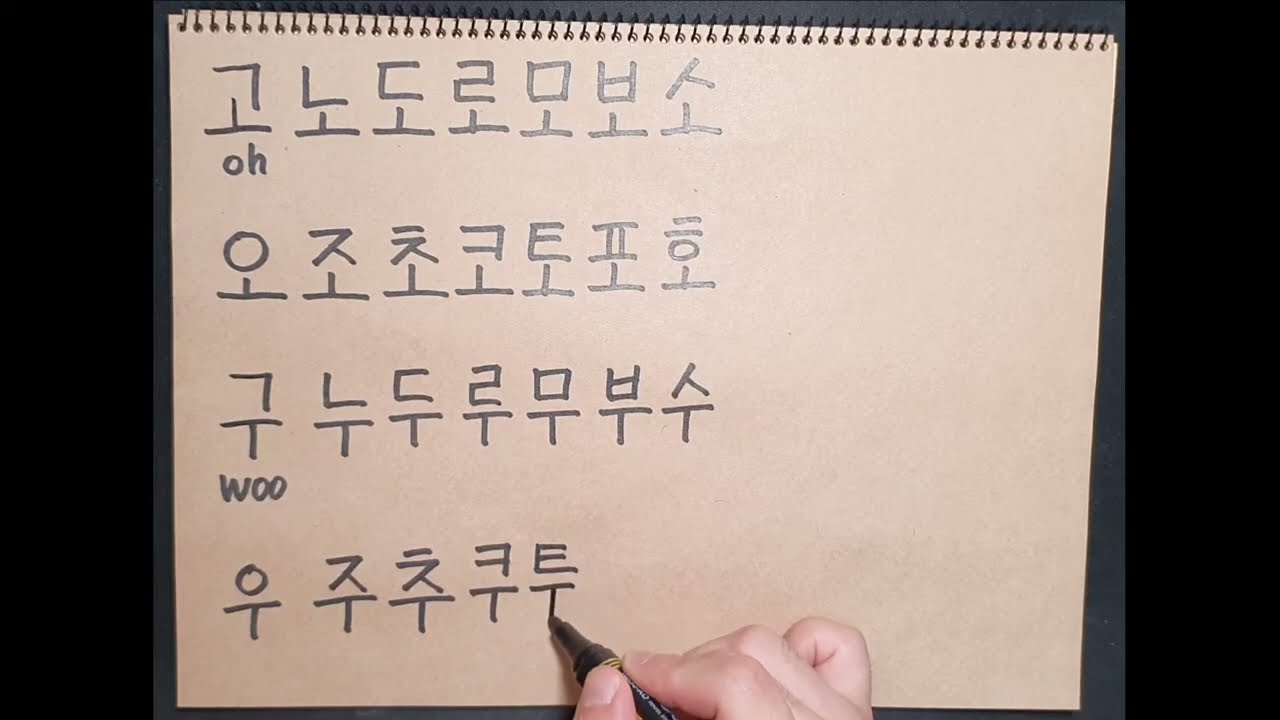 고 노 도 로 모 보 소
oh
오 조 초 코 토 포 호
구 누 두 루 무 부 수
woo
우 주 추 쿠 투